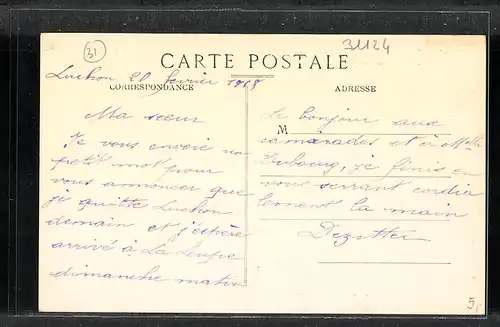 31
31124
CARTE POSTALE
Luchon 20 fevrier 1918
CORRESPONDANCE
ADRESSE
Ma sœur
Je vous envoie un
petit mot pour
vous annoncer que
je quitte Luchon
demain et j'éspère
arrivé à La
dimanche matin
Le bonjour aux
M
camarades et à Mlle
je finis en
vous serrant cordia
lement la main
5